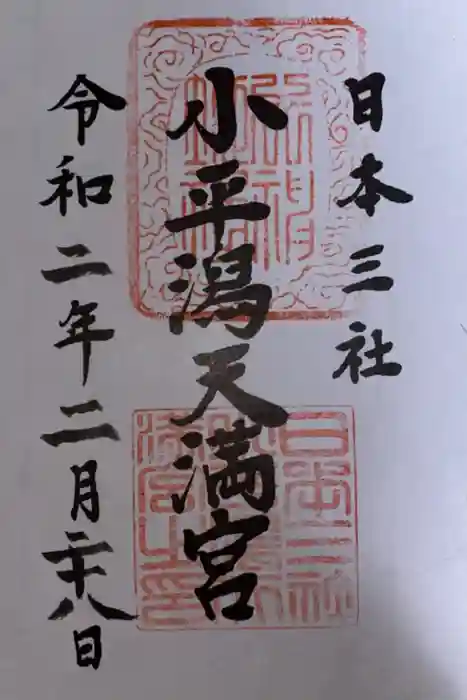 日本三社
小平潟天満宮
令和二年二月二十八日